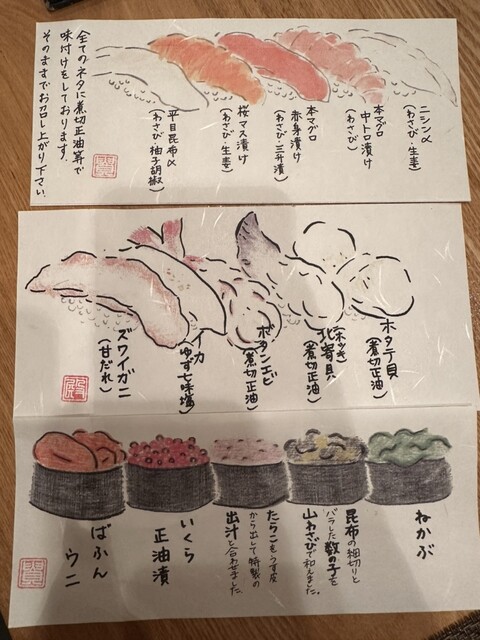 ニシン〆
(わさび・生姜)
本マグロ
中トロ漬け
(わさび)
本マグロ
赤身漬け
(わさび・三升漬)
桜マス漬け
(わさび・生姜)
平目昆布〆
(わさび・柚子胡椒)
全てのネタに煮切正油等で
味付けをしております。
そのままでお召し上がり下さい。
ホタテ貝
(煮切正油)
(ホッキ)
北寄貝
(煮切正油)
ボタンエビ
(煮切正油)
イカ
(ゆず七味塩)
ズワイガニ
(甘だれ)
ねかぶ
昆布の細切りと
バラした数の子を
山わさびで和えました。
たらこをうす皮
から出して特製の
出汁と合わせました。
いくら
正油漬
ばふん
ウニ